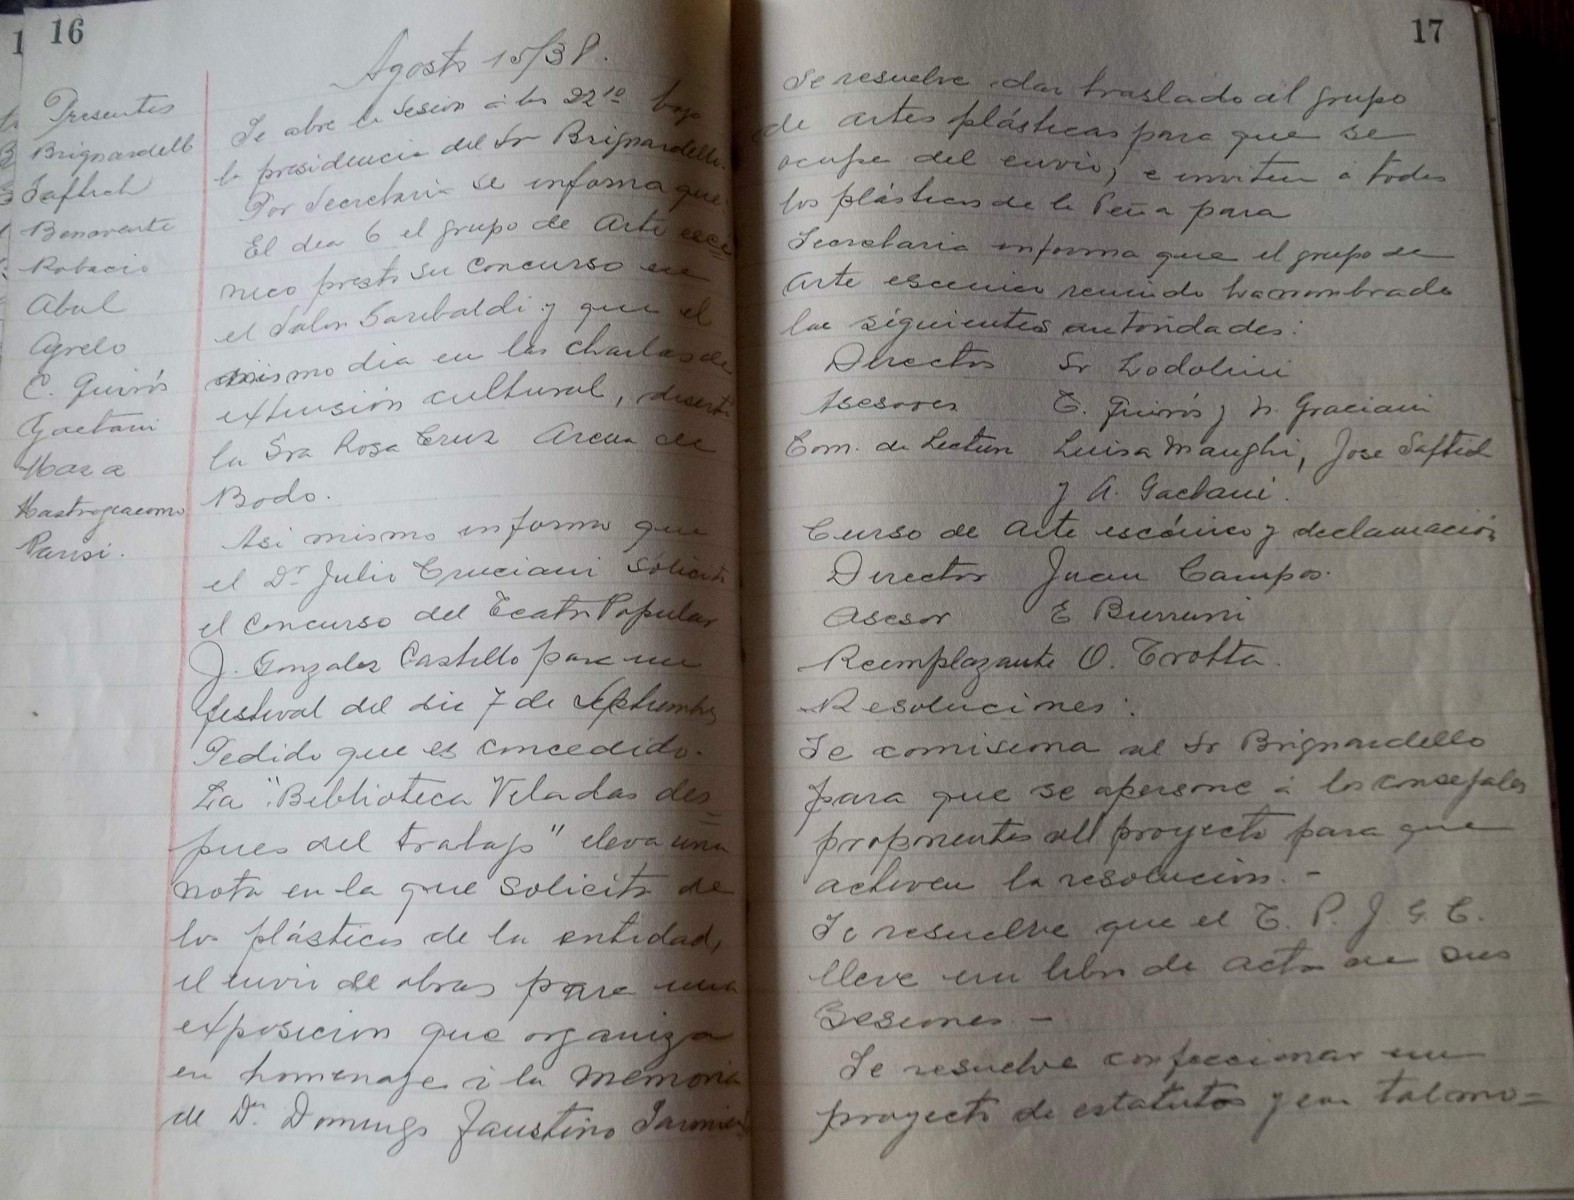 16
Agosto 15/38.
Presentes
Brignardello
Saftich
Benavente
Robacio
Abal
Agrelo
C. Quirós
Gaetani
Maza
Mastrogiacomo
Parisi.
Se abre la sesion á las 22 10 bajo
la presidencia del Sr Brignardello.
Por Secretaria se informa que
El dia 6 el grupo de Arte escé
nico prestó su concurso en
el Salon Garibaldi y que el
mismo dia en las charlas de
extensión cultural, disertó
la Sra Rosa Cruz Arena de
Bodo.
Asi mismo informo que
el Dr Julio Cruciani solicita
el concurso del Teatro Popular
J. Gonzalez Castillo para un
festival del dia 7 de Septiembre
Pedido que es concedido.
La "Biblioteca Veladas des=
pues del trabajo" eleva una
nota en la que solicita de
los plásticos de la entidad,
el envio de obras para una
exposicion que organiza
en homenaje á la memoria
de Dn Domingo Faustino Sarmiento
17
Se resuelve dar traslado al grupo
de artes plásticas para que se
ocupe del envio, e inviten á todos
los plásticos de la Peña para
Secretaria informa que el grupo de
Arte escenico reunido ha nombrado
las siguientes autoridades:
Director Sr Lodolini
Asesores C. Quirós y N. Graciani
Com. de Lectura Luisa Manghi, Jose Saftich
y A. Gaetani.
Curso de Arte escénico y declamación
Director Juan Campos.
Asesor E Burruni
Reemplazante O. Trotta.
Resoluciones:
Se comisiona al Sr Brignardello
para que se apersone á los consejales
proponentes del proyecto para que
activen la resolución. -
Se resuelve que el T. P. J. G. C.
lleve un libro de actas de sus
Sesiones. -
Se resuelve confeccionar un
proyecto de estatutos y en tal mo=